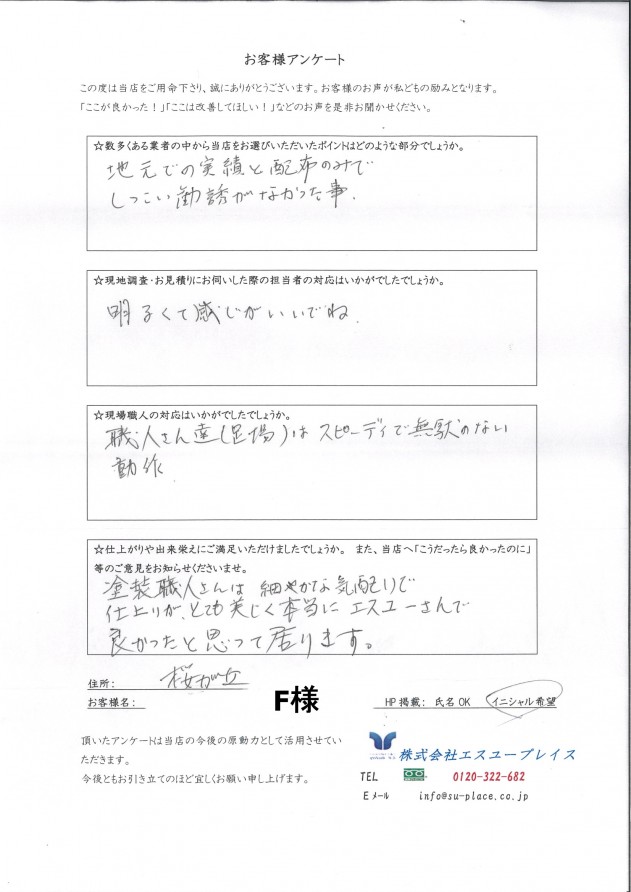 お客様アンケート
この度は当店をご用命下さり、誠にありがとうございます。お客様のお声が私どもの励みとなります。
「ここが良かった！」「ここは改善してほしい！」などのお声を是非お聞かせください。
☆数多くある業者の中から当店をお選びいただいたポイントはどのような部分でしょうか。
地元での実績と配布のみで
しつこい勧誘がなかった事.
☆現地調査・お見積りにお伺いした際の担当者の対応はいかがでしたでしょうか。
明るくて感じがいいでね.
☆現場職人の対応はいかがでしたでしょうか。
職人さん達(足場)はスピーディで無駄のない
動作
☆仕上がりや出来栄えにご満足いただけましたでしょうか。 また、当店へ「こうだったら良かったのに」
等のご意見をお知らせくださいませ。
塗装職人さんは 細やかな気配りで
仕上りが、とても美しく本当に エスユーさんで
良かったと思って居ります。
住所: 桜が丘
お客様名: F様 HP掲載: 氏名OK イニシャル希望
頂いたアンケートは当店の今後の原動力として活用させてい
ただきます。
今後ともお引き立てのほど宜しくお願い申し上げます。
株式会社エスユープレイス
TEL 0120-322-682
Eメール info@su-place.co.jp